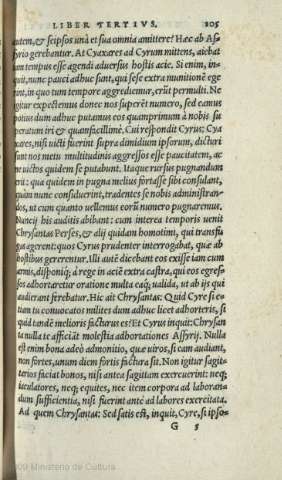 LIBER TERTIVS. 105
autem, & seipsos unà et sua omnia amittere? Hæc ab As-
syrio gerebantur. At Cyaxares ad Cyrum mittens, aiebat
iam tempus esse agendi aduersus hostis acie. Si enim, in-
quit, nunc pauci adhuc sunt, qui sese extra munitionē ege-
rint, in quo tum tempore aggrediemur, erūt permulti. Ne
igitur expectemus donec nos superēt numero, sed eamus
potius dum adhuc putamus eos quamprimum à nobis su-
peratum iri & quamfacillimè. Cui respondit Cyrus: Cya
xares, nisi uicti fuerint supra dimidium ipsorum, dicturi
sunt nos meis multitudinis aggressos esse paucitatem, ac
ne uictos quidem se putabunt. Itaque rursus pugnandum
erit: qua quidem in pugna melius fortasse sibi consulant,
quàm nunc consuluerint, tradentes se nobis administran-
dos, ut cum quanto uellemus eorū numero pugnaremus.
Nuncij his auditis abibant: cum interea temporis uenit
Chrysantas Perses, & alij quidam homotimi, qui transfu
gas agerent: quos Cyrus prudenter interrogabat, quæ ab
hostibus gererentur. Illi autē dicebant eos exisse iam cum
armis, disponiq́; à rege in acie extra castra, qui eos egres-
sos adhortaretur oratione multa eaq́; ualida, ut ab ijs qui
audierant ferebatur. Hic ait Chrysantas: Quid Cyre si e-
tiam tu conuocatos milites dum adhuc licet adhorteris, si
quid tandē melioris facturus es? Et Cyrus inquit: Chrysan
ta nulla te afficiāt molestia adhortationes Assyrij. Nulla
est enim bona adeò admonitio, quæ uiros, si eam audiant,
non fortes, anum diem fortis factura sit. Non igitur sagit-
tarios faciat bonos, nisi antea sagittam exercuerint: neq;
iaculatores, neq; equites, nec item corpora ad laboran-
dum sufficientia, nisi fuerint antè ad labores exercitata.
Ad quem Chrysantas: Sed satis est, inquit, Cyre, si ipso-
G 5
2009 Ministerio de Cultura